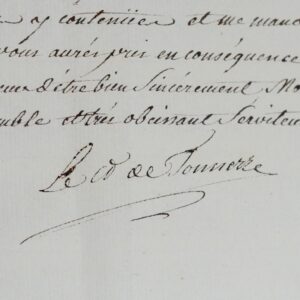 y contenües et me mand
vous aurés pris en conséquence
d'être bien sincérement Mo
umble et très obeissant Serviteu
Le cte de Tonnerre